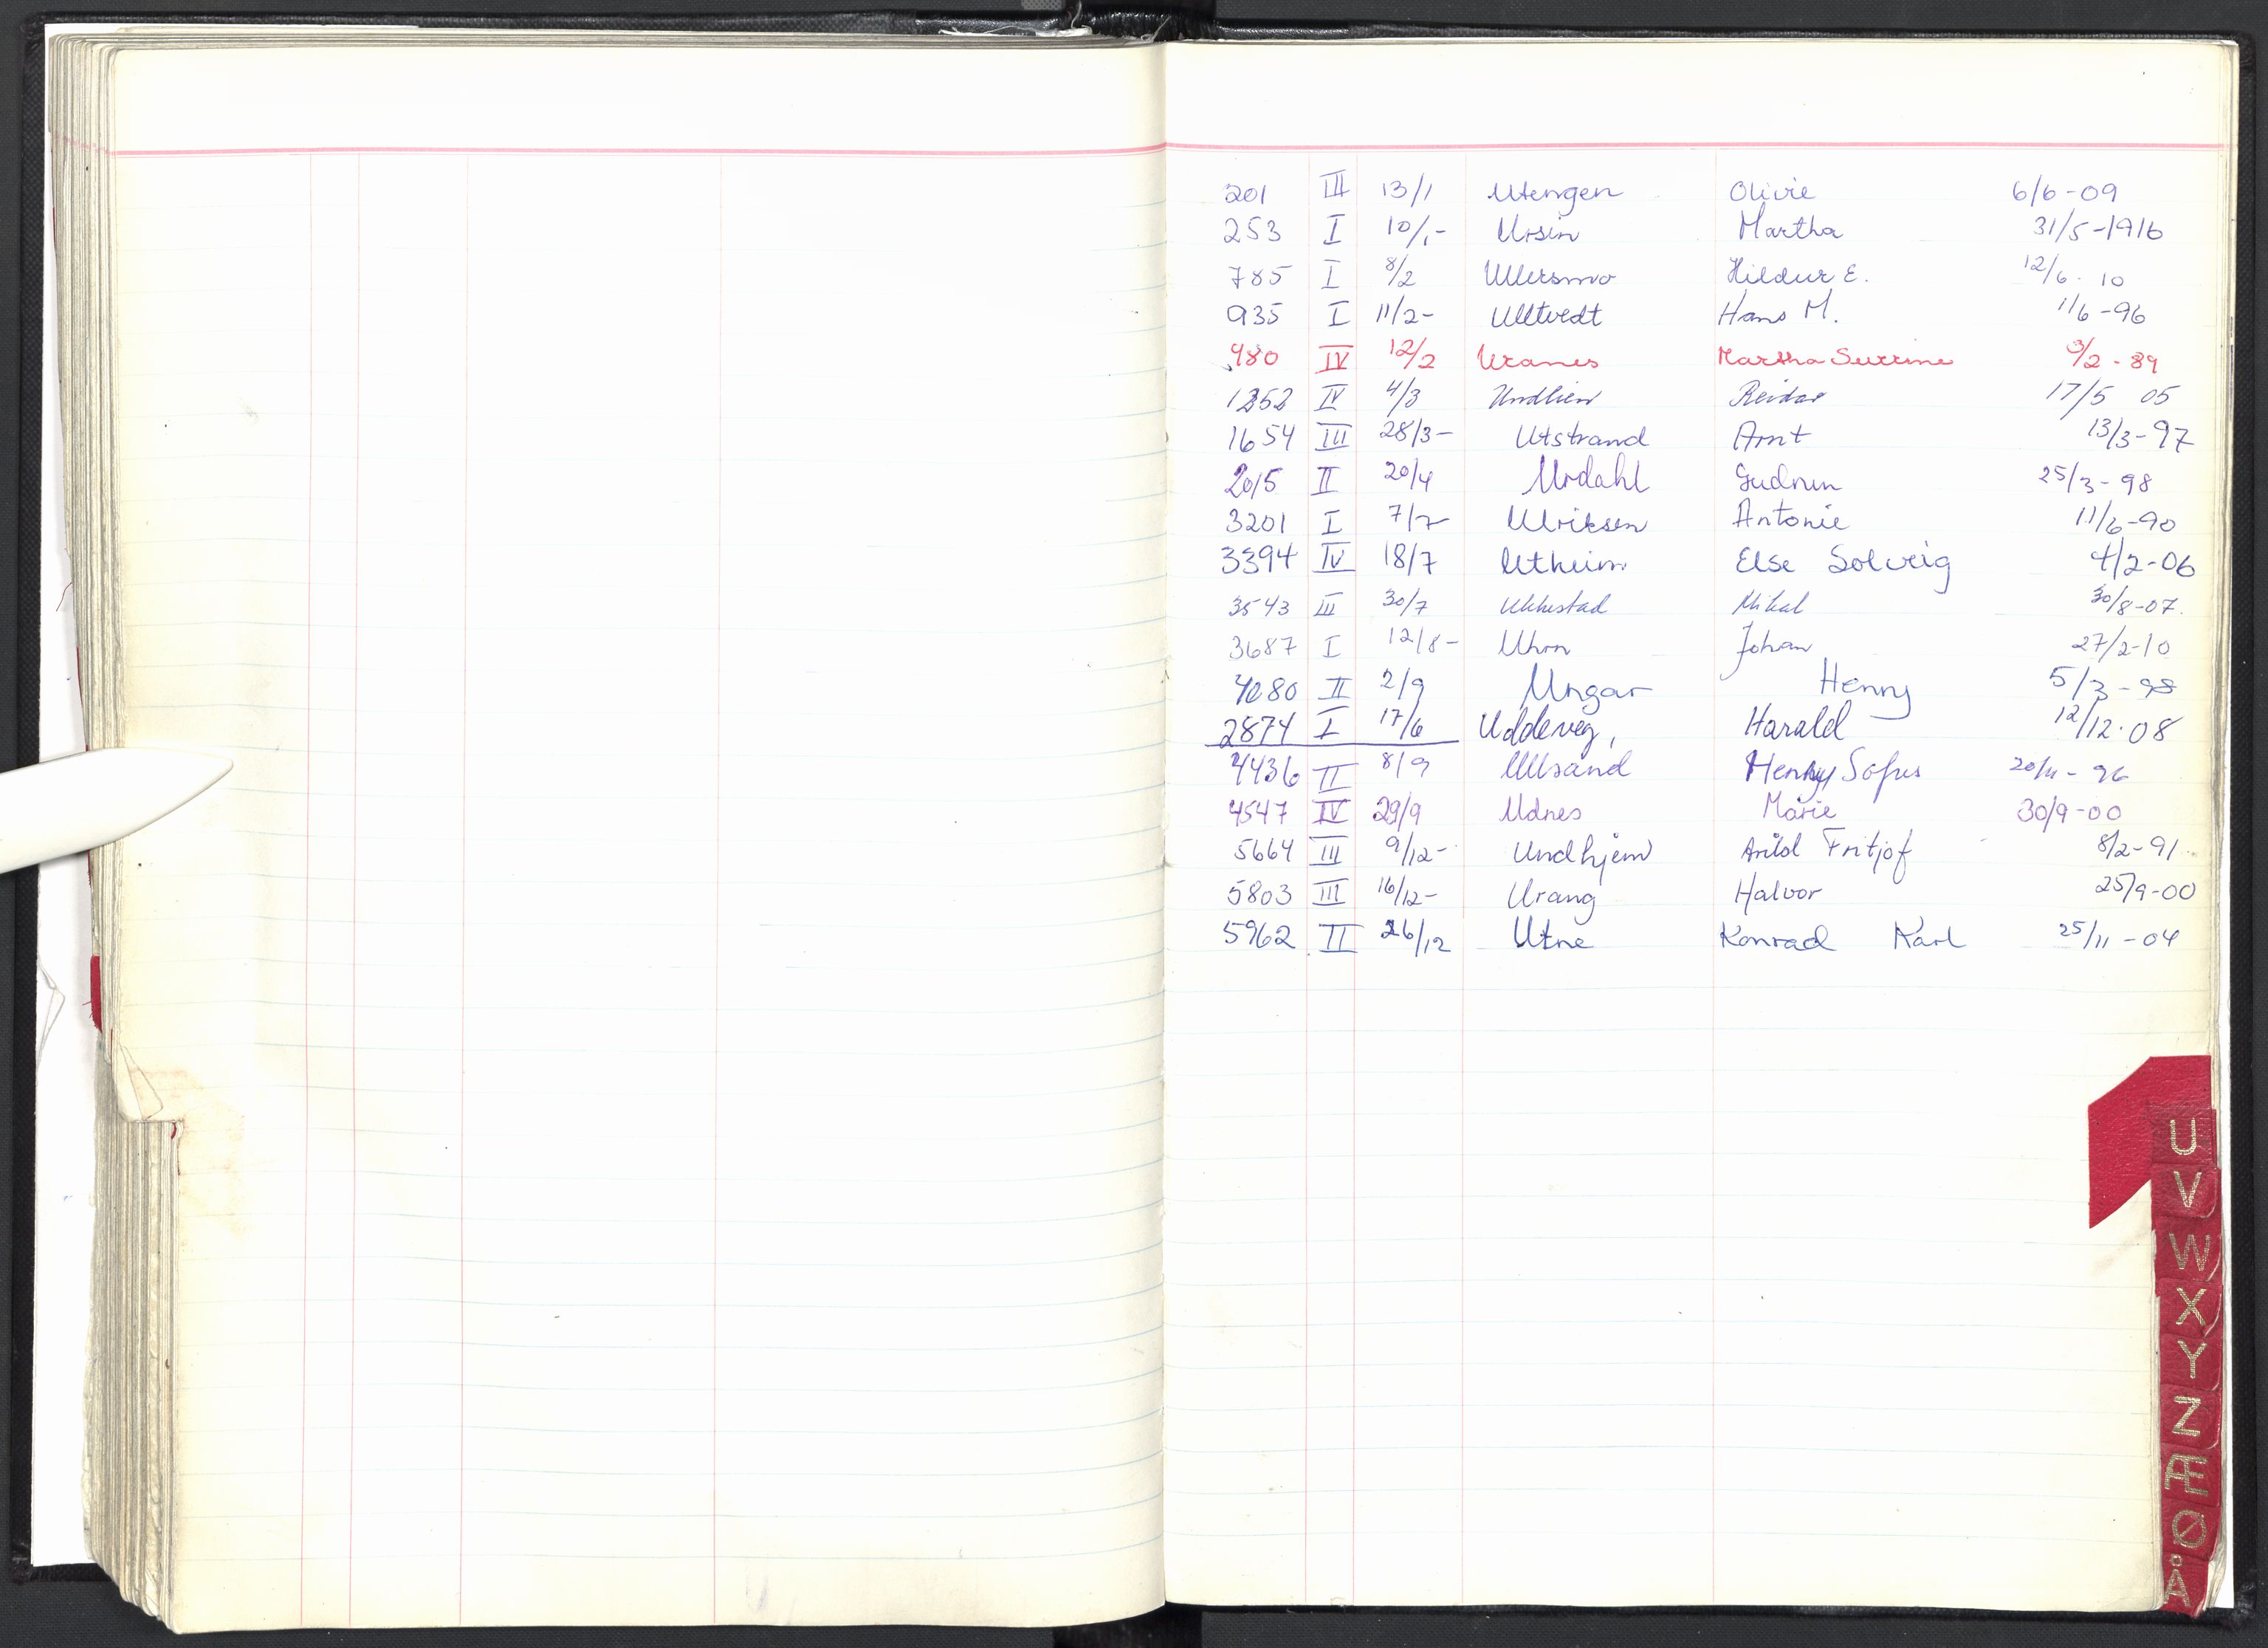 201 III 13/1 Utengen Olivie 6/6-09
253 I 10/1- Ursin Martha 31/5-1916
785 I 8/2 Ullersmo Hildur E. 12/6. 10
935 I 11/2- Ulltvedt Hans M. 1/6-96
980 IV 12/2 Uranes Martha Serine 3/2-89
1352 IV 4/3 Undlien Reidar 17/5 05
1654 III 28/3- Utstrand Arnt 13/3-97
2015 II 20/4 Urdahl Gudrun 25/3-98
3201 I 7/7 Ulriksen Antonie 11/6-90
3394 IV 18/7 Utheim Else Solveig 4/2-06
3543 III 30/7 Ukkestad Mikal 30/8-07.
3687 I 12/8- Uhrn Johan 27/2-10
4080 II 2/9 Ungar Henny 5/3-98
2874 I 17/6 Uddeveg, Harald 12/12.08
4436 II 8/9 Ullsand Henry Sofus 20/11-96
4547 IV 29/9 Udnes Marie 30/9-00
5664 III 9/12- Undhjem Arild Fritjof 8/2-91
5803 III 16/12- Urang Halvor 25/9-00
5962 II 26/12 Utne Konrad Karl 25/11-04
U
V
W
X
Y
Z
Æ
Ø
Å